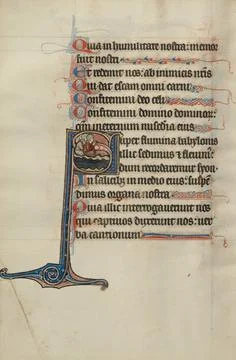 Quia in humilitate nostra: memor
fuit nostri
Et redemit nos: ab inimicis nr̄is
Qui dat escam omni carni
Confitemini deo celi
Confitemini domino dominoꝝ:
qm̄ in eternum misc̄dia eius
Super flumina babylonis
illic sedimus et fleuim᷒:
dum recordaremur syon
In salicib᷒ in medio eius: suspē
dimus organa nostra
Quia illic interrogauerunt nos
qui captiuos duxerunt nos: uer
ba cantionum